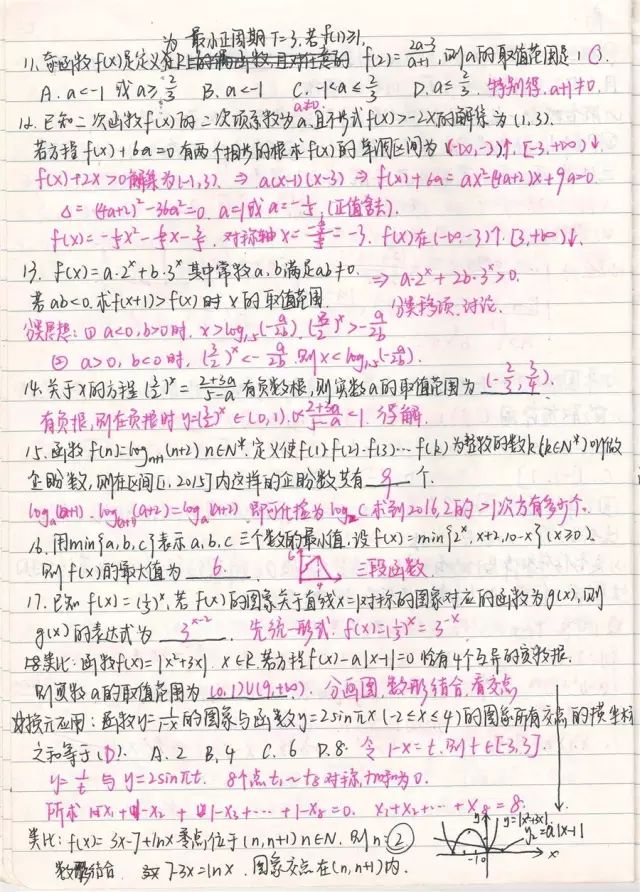 为 最小正周期T=3,若f(1)≥1,
11.奇函数f(x)是定义在R上的 f(2)=(2a-3)/(a+1),则a的取值范围是:C.
A.a<-1或a≥2/3 B.a<-1 C.-1<a≤2/3 D.a≤2/3. 特别得.a+1≠0.
a≠0.
12.已知二次函数f(x)的二次项系数为a,且不等式f(x)>-2x的解集为(1,3).
若方程f(x)+6a=0有两个相等的根求f(x)的单调区间为(-∞,-3)↑,[-3,+∞)↓
f(x)+2x>0解集为(1,3) ⇒ a(x-1)(x-3) ⇒ f(x)+6a=ax²-(4a+2)x+9a=0
Δ=(4a+2)²-36a²=0. a=1或a=-1/5,(正值舍去).
f(x)=-1/5x²-6/5x-3/5. 对称轴x= =-3. f(x)在(-∞,-3)↑,[3,+∞)↓.
13. f(x)=a·2^x+b·3^x其中常数a,b满足ab≠0. ⇒a·2^x+2b·3^x>0.
若ab<0.求f(x+1)>f(x)时x的取值范围. 分类移项.讨论.
分类思想:① a<0,b>0时. x>log₁.₅(-a/2b). (3/2)^x>-a/2b
② a>0,b<0时,(3/2)^x<-a/2b.则x<log₁.₅(-a/2b).
14.关于x的方程(3/2)^x=(2+3a)/(5-a)有负数根,则实数a的取值范围为(-2/3,3/4).
有负根,则在负根时y=(3/2)^x∈(0,1).0<(2+3a)/(5-a)<1 得解.
15.函数f(n)=log_(n+1)(n+2) n∈N*.定义使f(1)·f(2)·f(3)…f(k)为整数的数k(k∈N*)叫做
企盼数,则在区间[1,2015]内这样的企盼数共有 9 个.
log_a(a+1)·log_(a+1)(a+2)=log_a(a+2) 即可化简为log₂C求到2016,2的>1次方有多少个.
16.用min{a,b,c}表示a,b,c三个数的最小值.设f(x)=min{2^x,x+2,10-x}(x≥0).
则f(x)的最大值为 6. 三段函数.
17.已知f(x)=(1/3)^x,若f(x)的图象关于直线x=1对称的图象对应的函数为g(x),则
g(x)的表达式为 3^(x-2). 先统一形式.f(x)=(1/3)^x=3^(-x)
18类比:函数f(x)=|x²+3x|.x∈R.若方程f(x)-a|x-1|=0恰有4个互异的实数根.
则实数a的取值范围为(0,1)∪(9,+∞). 分画图,数形结合.看交点
换元应用:函数y=1/(1-x)的图象与函数y=2sinπx(-2≤x≤4)的图象所有交点的横坐标
之和等于(D). A.2 B.4 C.6 D.8. 令1-x=t.则t∈[-3,3].
y=1/t与y=2sinπt. 8个点t₁~t₈对称,加和为0.
所求1-x₁+1-x₂+1-x₃+…+1-x₈=0. x₁+x₂+…+x₈=8.
类比:f(x)=3x-7+lnx零点位于(n,n+1)n∈N.则n=② y=|x²+3x| y₂=a|x-1|
数形结合 7-3x=lnx.图象交点在(n,n+1)内.